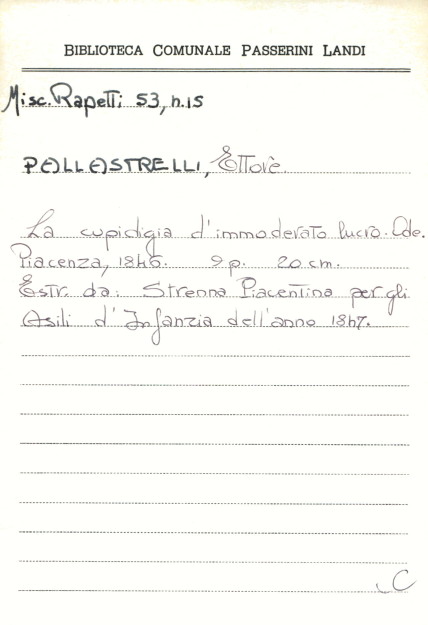 BIBLIOTECA COMUNALE PASSERINI LANDI
Misc. Rapetti 53, n.15
PALLASTRELLI, Ettore.
La cupidigia d'immoderato lucro. Ode.
Piacenza, 1846. 9 p. 20 cm.
Estr. da: Strenna Piacentina per gli
Asili d'Infanzia dell'anno 1847.
C